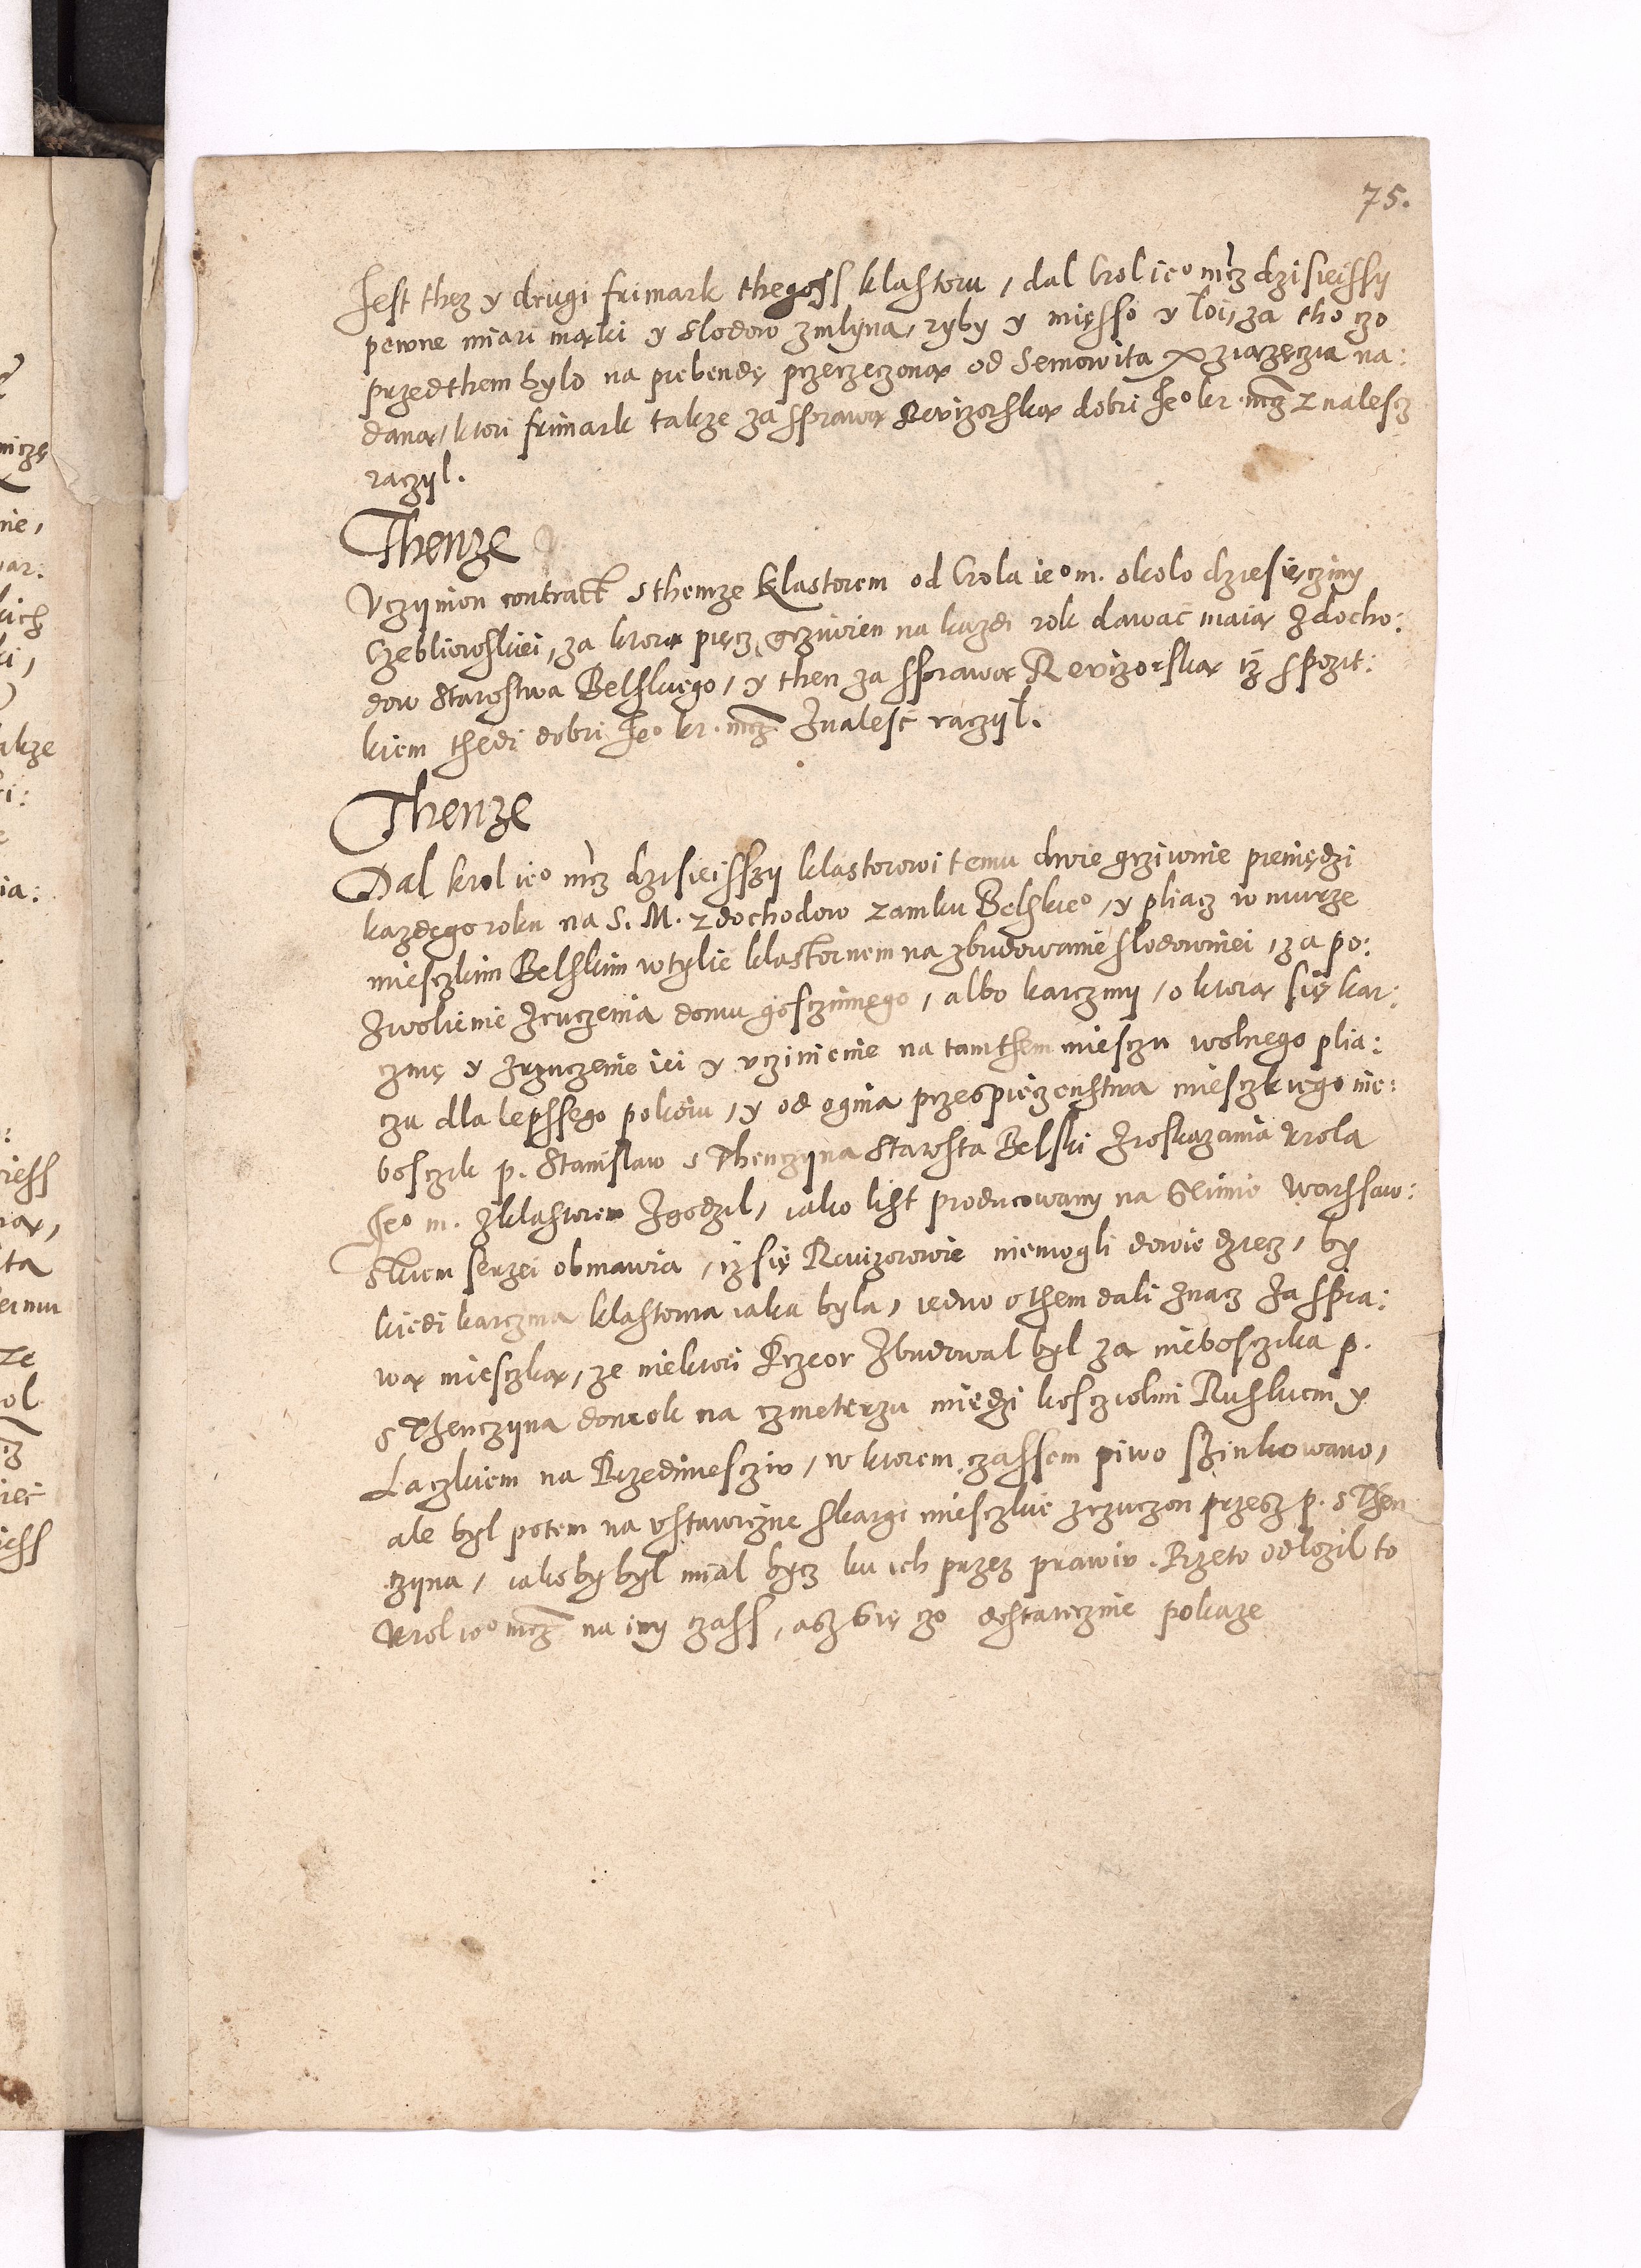 75.
Jest thez y drugi frimark thegoss klastoru, dal krol ieº mcz dzisieissy
pewne miari mąki y slodow zmlyna, ryby y mięsso y loi, za tho czo
przedthem bylo na prebendę przerzeczoną od Semowita Xziązęczia na:
daną, ktori frimark takze za sprawą Revizorską dobri Jeº kr. mcz znalescz
raczyl.
Thenze
Vczynion contract sthemze klastorem od krola ieº m. okolo dziesięcziny
Czebliowskiei, za ktorą pięcz grziwien na kazdi rok dawać maią zdocho:
dow Starostwa Belskiego, y then za sprawą Revizorską iz spozit:
kiem thedi dobri Jeº kr. mcz znalesć raczyl.
Thenze
Dal krol ieº mcz dzisieisszy klastorowi temu dwie grziwnie pieniędzi
kazdego roku na S. M. zdochodow zamku Belskieº, y pliacz w murze
miesczkim Belskim wtylie klastornem na zbudowanie slodowniei, za po:
zwolienie zruczenia domu gosczinnego, albo karczmy, o ktorą się kar:
czmę y zrzuczenie iei y vczinienie na tamthem miesczu wolnego plia:
czu dla lepssego pokoiu, y od ognia przespieczenstwa miesczkiego nie:
bosczik p. Stanislaw s Thenczyna Starosta Belski zroskazania krola
Jeº m. zklastorem zgodzil, iako list producowany na Seimie Warssaw:
skiem serzei obmawia, iz się Revizorowie niemogli dowiedziecz, by
kiedi karczma klastorna iaka byla, iedno othem dali znacz za spra:
wą miesczką, ze niektori Przeor zbudowal byl za niebosczika p.
s Thenczyna domek na czmeterzu miedzi kosczolmi Ruskiem y
Laczkiem na Przedmiesciu, w ktorem czassem piwo szinkowano,
ale byl potem na vstawiczne skargi miesczkie zrzuczon przesz p. s Then
czyna, iakoby byl mial bycz ku ich przez prawiu. Przeto odlozil to
krol ieº mcz na iny czass, asz się czo dostatecznie pokaze